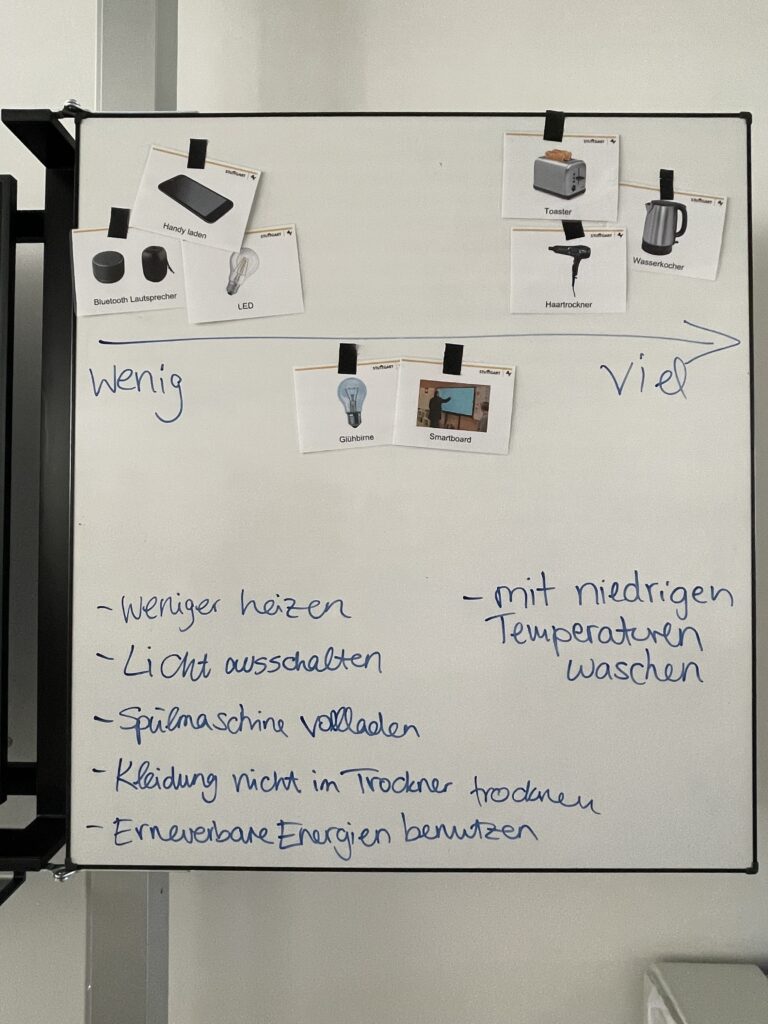 STUTTGART
Handy laden
STUTTGART
Bluetooth Lautsprecher
STUTTGART
LED
STUTTGART
Toaster
STUTTGART
Wasserkocher
STUTTGART
Haartrockner
wenig
viel
STUTTGART
Glühbirne
STUTTGART
Smartboard
- weniger heizen
- Licht ausschalten
- Spülmaschine vollladen
- Kleidung nicht im Trockner trocknen
- Erneuerbare Energien benutzen
- mit niedrigen
Temperaturen
waschen